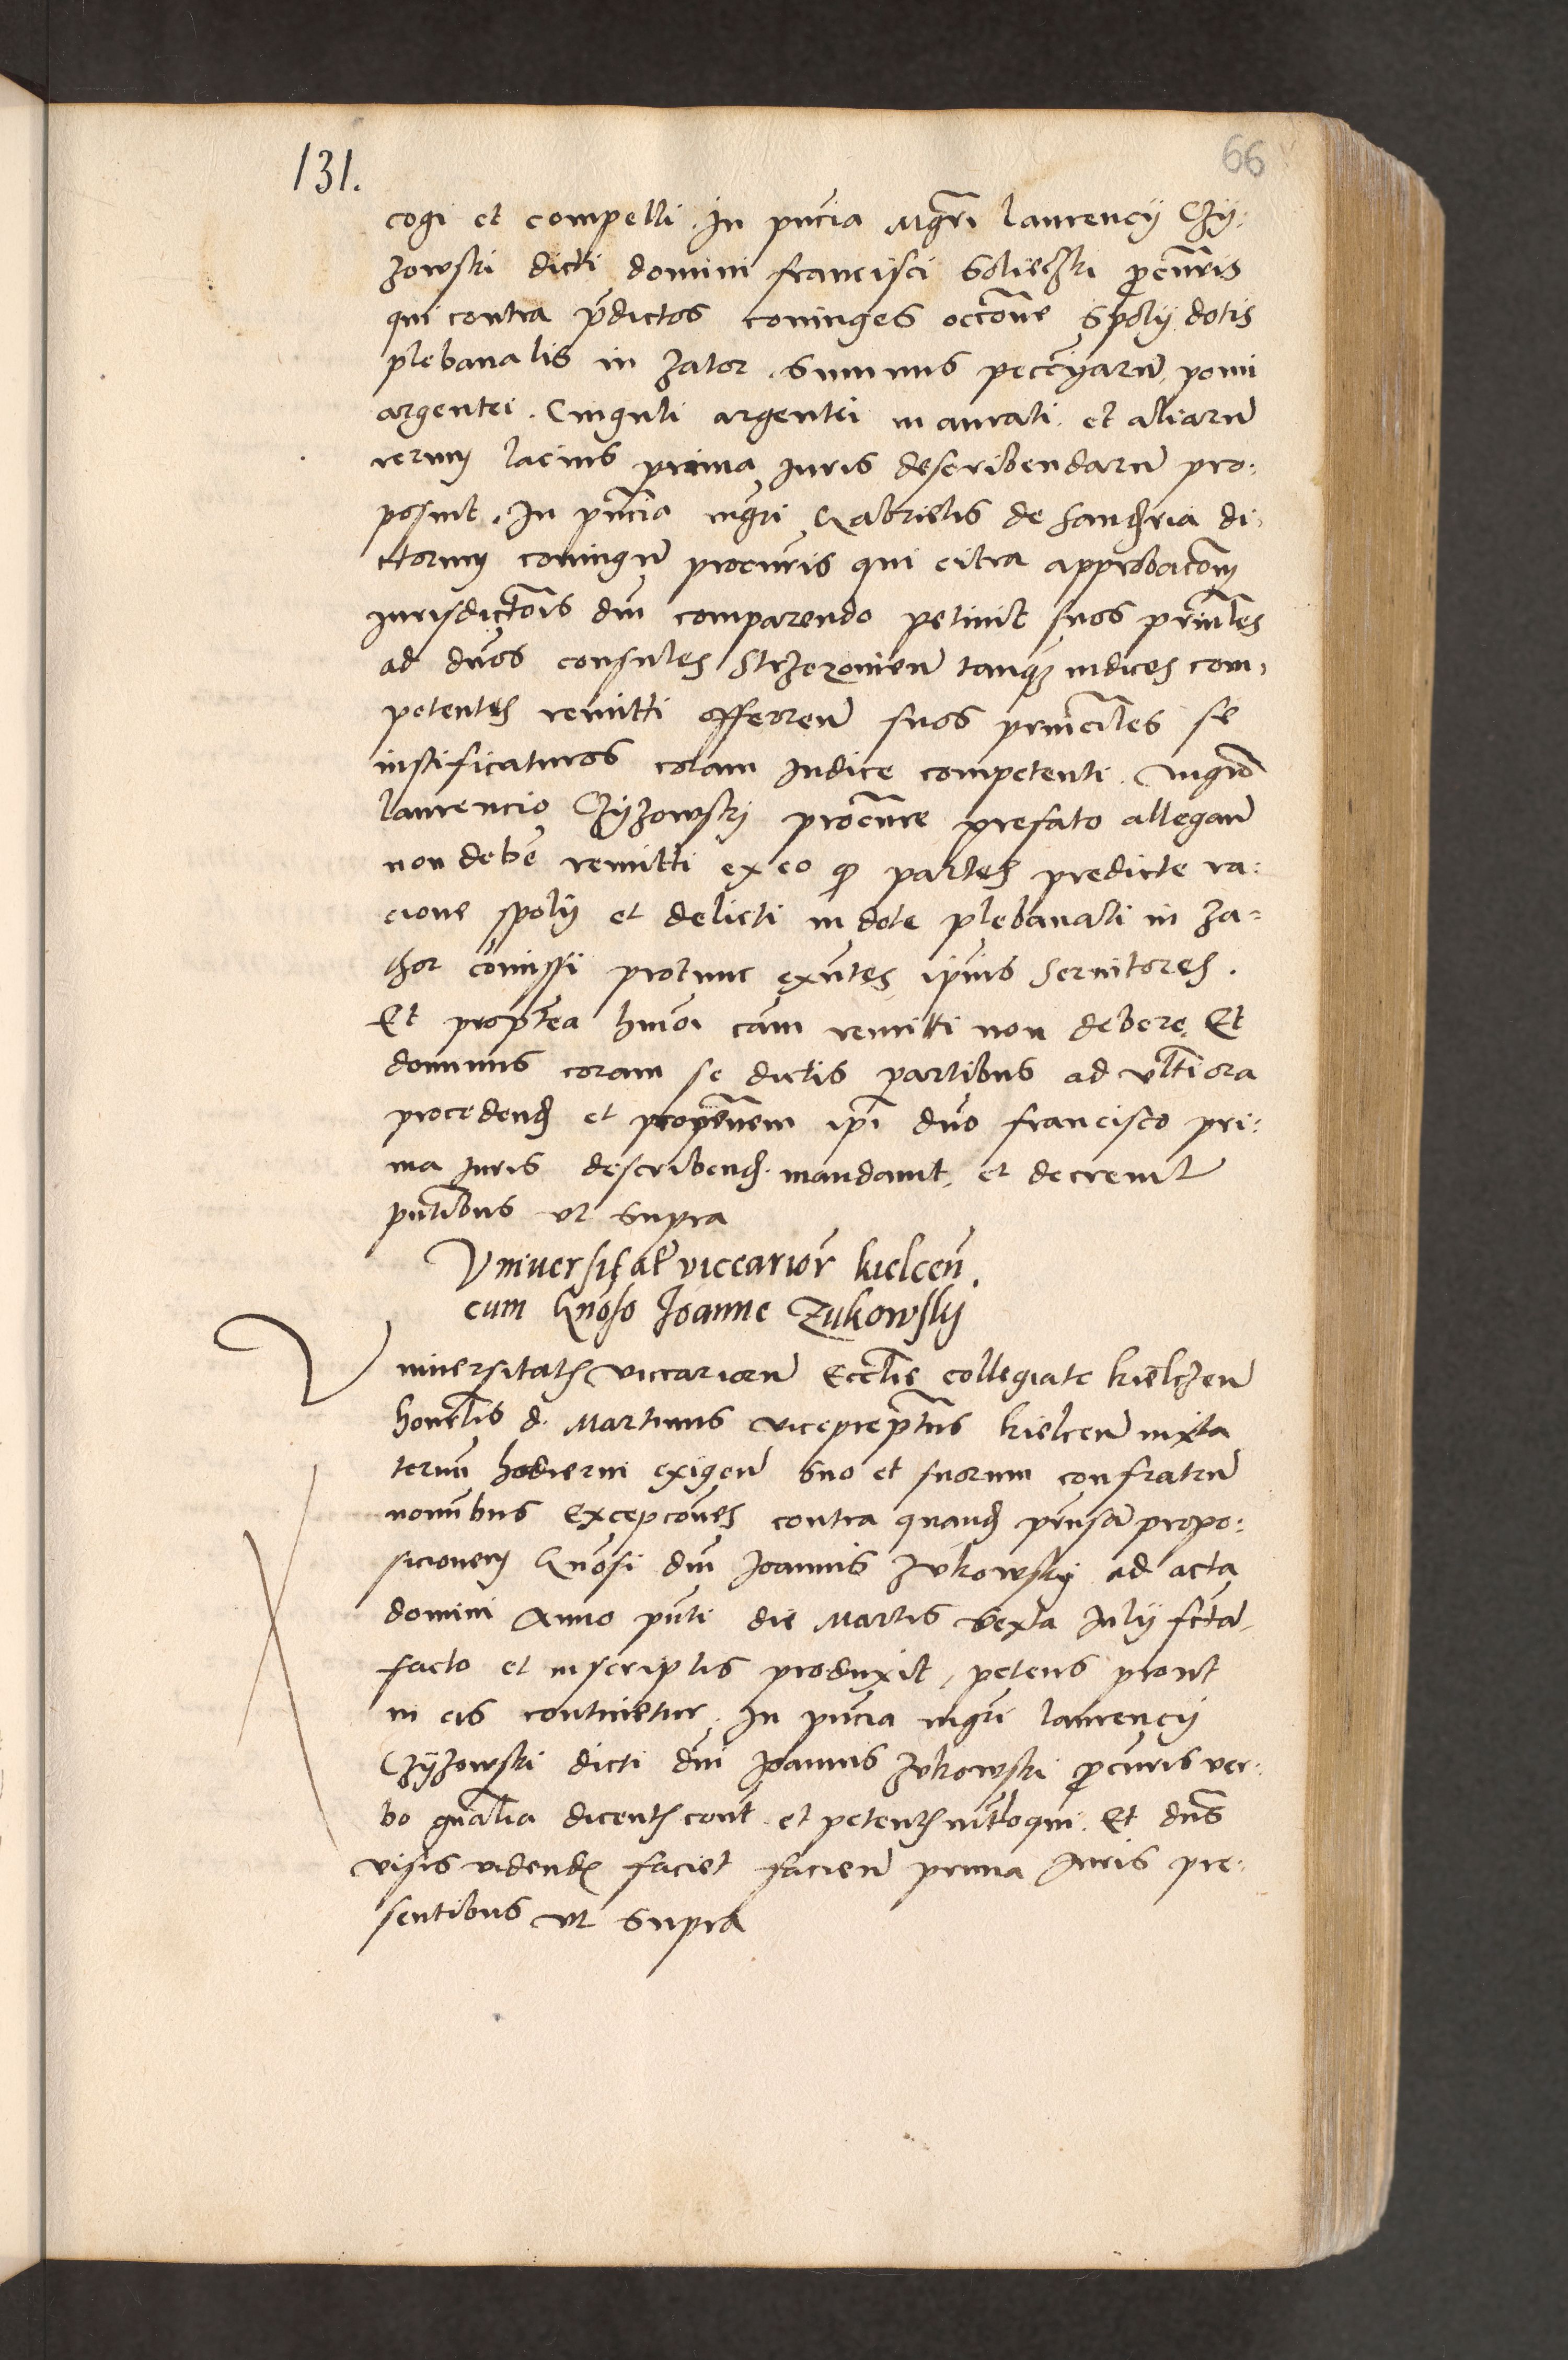 131.
66
cogi et compelli. In pn̄cia Mgr̄i laurencij Czy:
zowski dicti domini francisci Soliecżki ꝓcūris
qui contra p̄dictos coniuges occōne spolij dotis
plebanalis in Zator. summis pecūiarū, pomi
argentei. Cinguli argentei inaurati. et aliarū
rerum lacius prima Iuris describendarū pro:
posuit. In pn̄cia mgr̄i Gabrielis de sandzria di,
ctorum coniugū procūris qui citra approbacōem
iurisdictōis dni comparendo petiuit suos prin̄les
ad dnos consules Strzezouien̄ tanq̄ iudices com,
petentes remitti offeren̄ suos prin̄cīles se
iustificaturos coram Iudice competenti. Mgrō
laurencio Czyzowsky procūre prefato allegan̄
non debē remitti ex eo ꝙ partes predicte ra:
cione spolij et delicti in dote plebanali in Za=
thor cōmissi protunc exn̄tes ipius seruitores.
Et propterea hmōi cām remitti non debere. Et
dominus coram se dictis partibus ad vlt̄iora
procedend et propōnem ipī dno francisco pri:
ma Iuris describend. mandauit, et decreuit
pn̄tibus vt supra
Vniuersitat̄ viccarior̄ kielceñ.
cum Gnōso Ioanne Zukowsky
Vniuersitatis viccariorū Eccl̄ie collegiate kielczen̄
honor̄lis d. Martinus viceprep̄tus kielcen̄ iuxta
termī hodierni exigen̄ suo et suorum confratrū
nomībus Excepcōnes contra quand prēnsā propo:
sicionem Gnōsi dni Ioannis Zvkowsky ad acta
domini Anno pn̄ti die Martis sexta Iulij fctā
facto et inscriptis produxit, petens prout
in eis continetur. In pn̄cia mgr̄i laurencij
Czyzowski dicti dni Ioannis Zvkowski ꝓcūris ver:
bo gn̄alia dicent cont̄. et petentis int̄loqui. Et dns̄
visis videndis faciet facien̄ prima Iuris pre:
sentibus vt supra